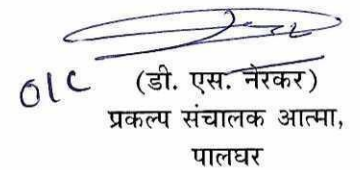 O/C (डी. एस. नेरकर)
प्रकल्प संचालक आत्मा,
पालघर